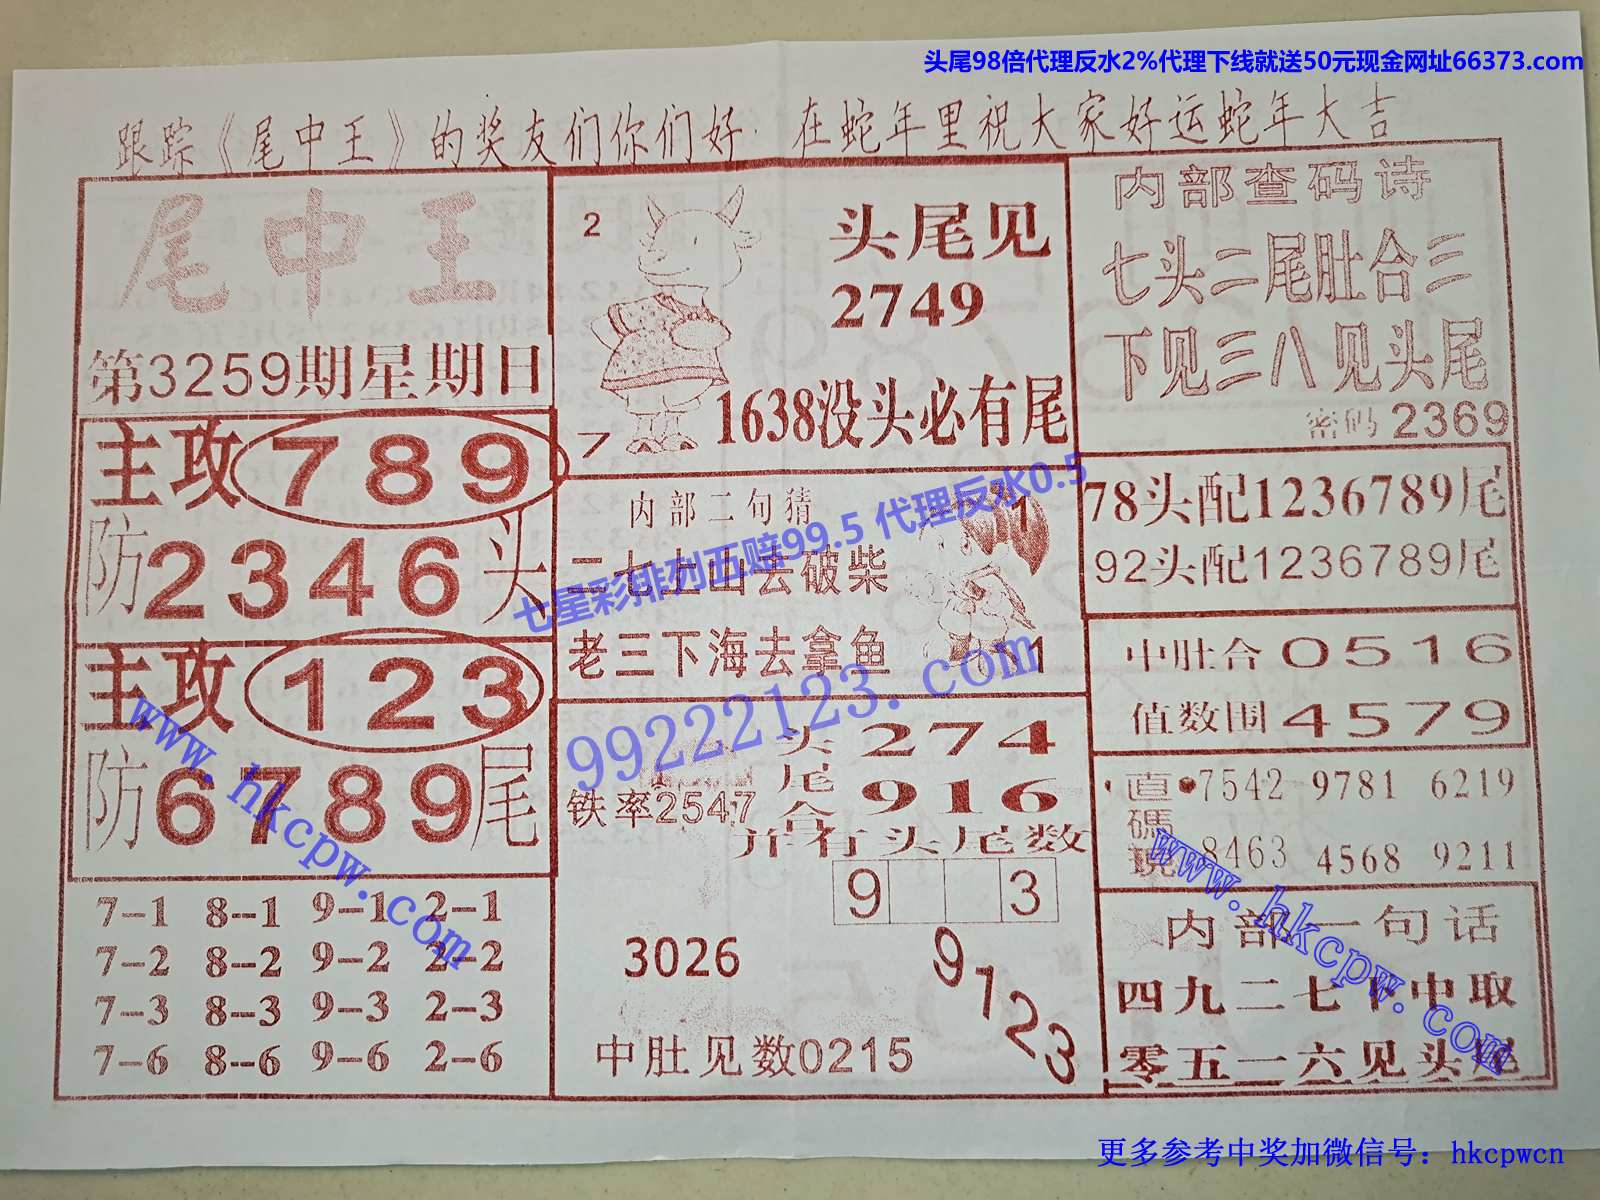 头尾98倍代理反水2%代理下线就送50元现金网址66373.com
跟踪《尾中王》的奖友们你们好. 在蛇年里祝大家好运蛇年大吉
尾中王
第3259期星期日
主攻789
防2346头
主攻123
防6789尾
7--1 8--1 9--1 2--1
7--2 8--2 9--2 2--2
7--3 8--3 9--3 2--3
7--6 8--6 9--6 2--6
2
7
头尾见
2749
1638没头必有尾
内部二句猜
二七上山去破柴
老三下海去拿鱼
1
61
七星彩排列五赔99.5 代理反水0.5
99222123.com
头274
尾
合916
铁率2547
并有头尾数
9 3
3026
9723
中肚见数0215
内部查码诗
七头二尾肚合三
下见三八见头尾
密码2369
78头配1236789尾
92头配1236789尾
中肚合0516
值数围4579
直碼現
7542 9781 6219
8463 4568 9211
内部一句话
四九二七下中取
零五一六见头尾
www.hkcpw.com
www.hkcpw.com
更多参考中奖加微信号：hkcpwcn